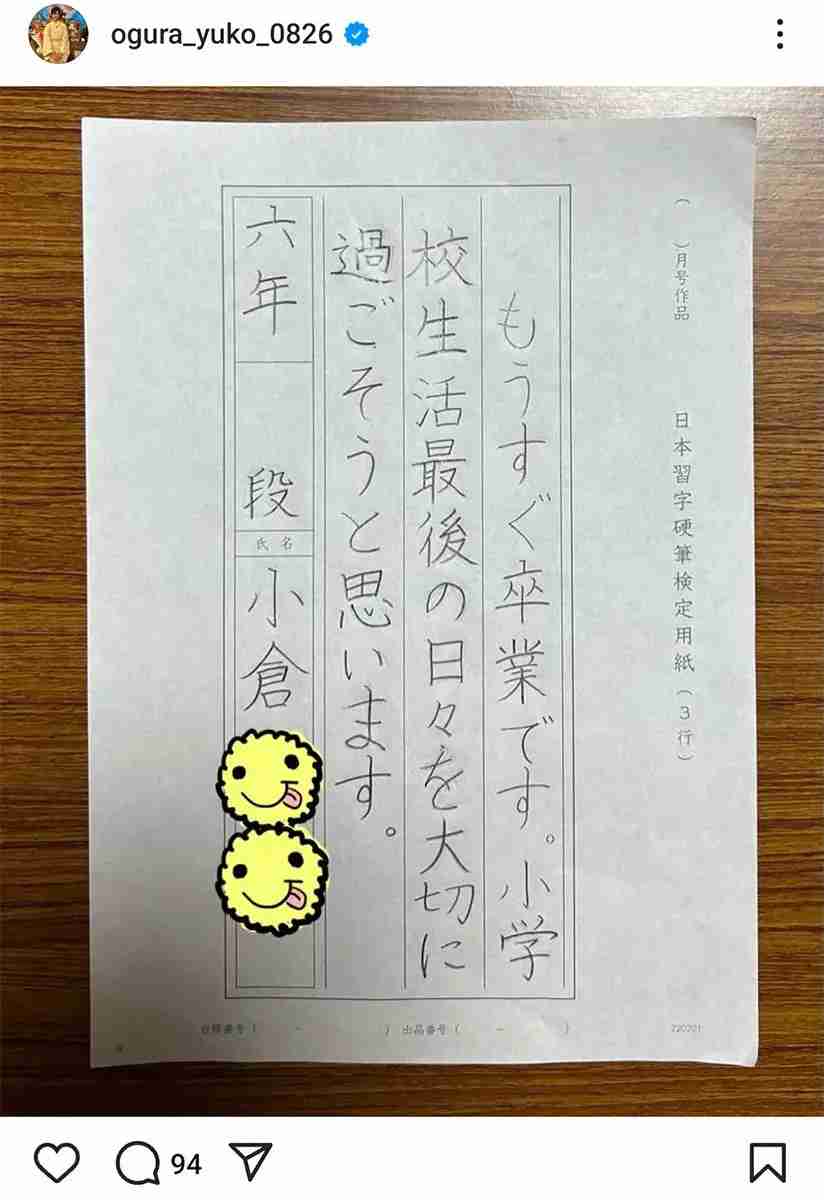 ogura_yuko_0826
( )月号作品
日本習字硬筆検定用紙(3行)
もうすぐ卒業です。小学
校生活最後の日々を大切に
過ごそうと思います。
六年
段
氏名
小倉
出品番号( - )
220201
94